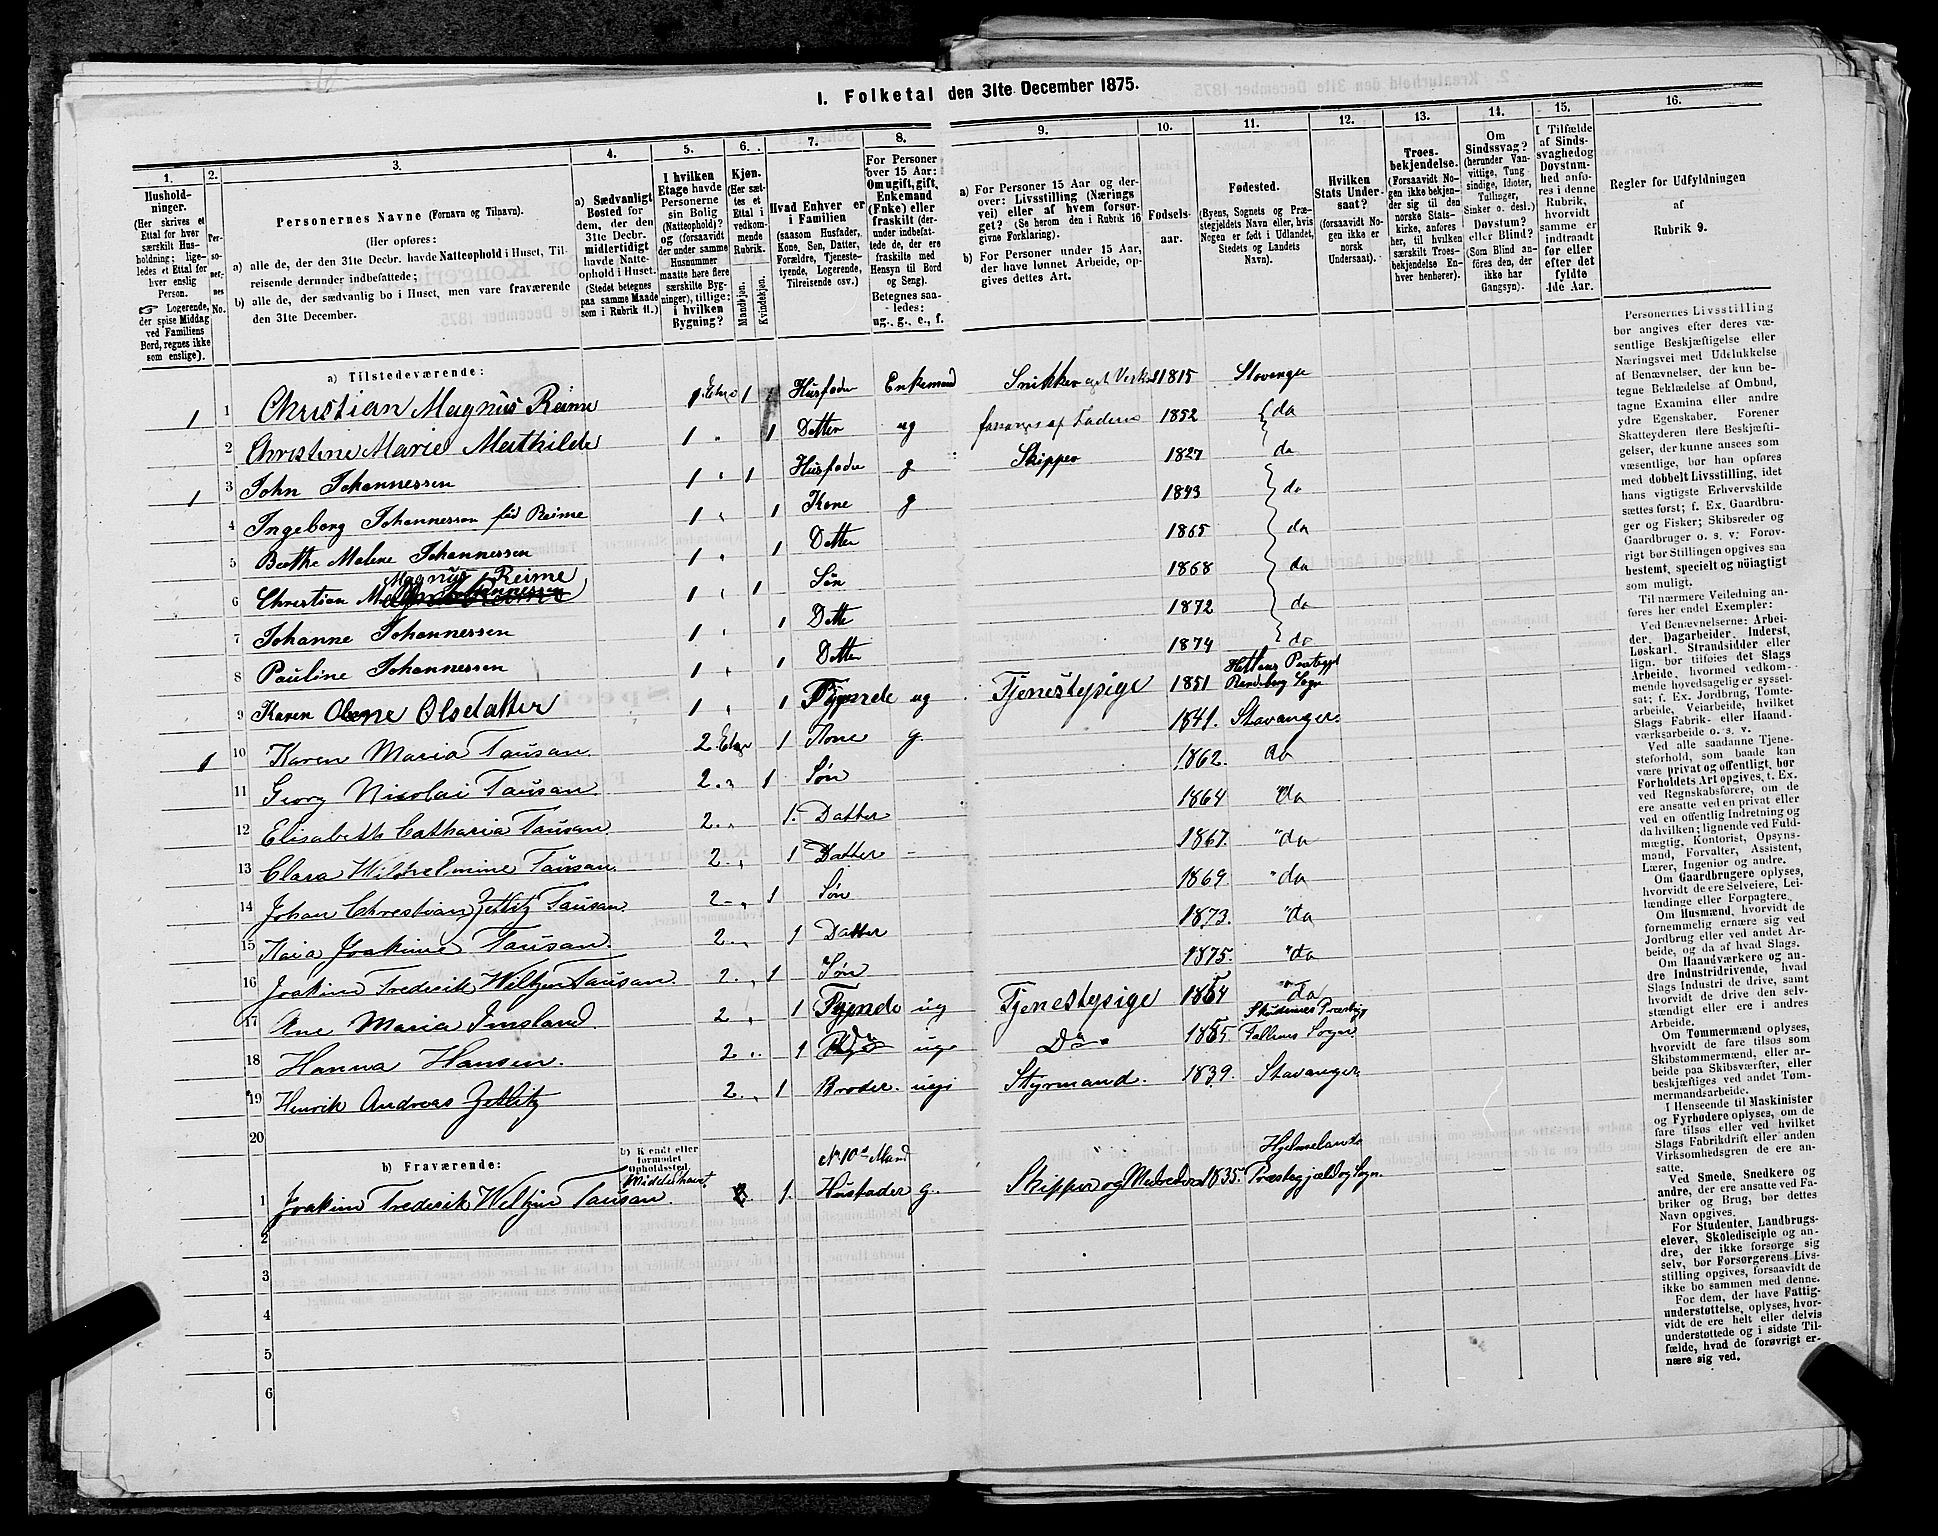 I. Folketal den 31te December 1875.
1. 2. 3. 4. 5. 6. 7. 8. 9. 10. 11. 12. 13. 14. 15. 16.
Husholdninger. (Her skrives et Ettal for hver særskilt Husholdning; ligeledes et Ettal for hver enslig Person. ☞ Logerende, der spise Middag ved Familiens Bord, regnes ikke som enslige).
Personernes No.
Personernes Navne (Fornavn og Tilnavn).
(Her opføres:
a) alle de, der den 31te Decbr. havde Natteophold i Huset, Tilreisende derunder indbefattede;
b) alle de, der sædvanlig bo i Huset, men vare fraværende den 31te December.
a) Sædvanligt Bosted for dem, der den 31te Decbr. midlertidigt havde Natteophold i Huset. (Stedet betegnes paa samme Maade som i Rubrik 11.)
I hvilken Etage havde Personerne sin Bolig (Natteophold)? og (forsaavidt der under samme Husnummer maatte høre flere særskilte Bygninger), tillige: i hvilken Bygning?
Kjøn. (Her sættes et Ettal i vedkommende Rubrik.
Mandkjøn. Kvindekjøn.
Hvad Enhver er i Familien (saasom Husfader, Kone, Søn, Datter, Forældre, Tjenestetyende, Logerende, Tilreisende osv.)
For Personer over 15 Aar: Om ugift, gift, Enkemand (Enke) eller fraskilt (derunder indbefattede de, der ere fraskilte med Hensyn til Bord og Seng). Betegnes saaledes: ug., g., e., f.
a) For Personer 15 Aar og derover: Livsstilling (Næringsvei) eller af hvem forsørget? (Se herom den i Rubrik 16 givne Forklaring).
b) For Personer under 15 Aar, der have lønnet Arbeide, opgives dettes Art.
Fødselsaar.
Fødested. (Byens, Sognets og Præstegjeldets Navn eller, hvis Nogen er født i Udlandet, Stedets og Landets Navn).
Hvilken Stats Undersaat? (forsaavidt Nogen ikke er norsk Undersaat).
Troesbekjendelse. (Forsaavidt Nogen ikke bekjender sig til den norske Statskirke, anføres her, til hvilken særskilt Troesbekjendelse Enhver henhører).
Om Sindssvag? (herunder Vanvittige, Tungsindige, Idioter, Tullinger, Sinker o. desl.) Døvstum? eller Blind? (Som Blind anføres den, der ikke har Gangsyn).
I Tilfælde af Sindssvaghed og Døvstumhed anføres i denne Rubrik, hvorvidt samme er indtraadt før eller efter det fyldte 4de Aar.
Regler for Udfyldningen af Rubrik 9.
a) Tilstedeværende:
1 1 Christian Magnus Reime 1 Etage 1 Husfader Enkemand Snikker 1815 Stavanger
2 Christine Marie Mathilde 1 " 1 Datter ug forsørges af Faderen 1852 da
1 3 John Johannessen 1 " 1 Husfader g Skipper 1827 da
4 Ingeborg Johannessen fød Reime 1 " 1 Kone g 1843 da
5 Berthe Malene Johannessen 1 " 1 Datter 1865 da
6 Christian Magnus Reime Johannessen 1 " 1 Søn 1868 da
7 Johanne Johannessen 1 " 1 Datter 1872 da
8 Pauline Johannessen 1 " 1 Datter 1874 da
9 Karen Olene Olsdatter 1 " 1 Tjenende ug Tjenestepige 1851 Randeberg Sogn
1 10 Karen Maria Tausan 2 Etage 1 Kone g 1841. Stavanger.
11 Georg Nicolai Tausan 2. " 1 Søn 1862. da
12 Elisabeth Catharia Tausan 2. " 1. Datter 1864 "da
13 Clara Wilhelmine Tausan. 2. " 1 Datter - 1867. "da
14 Johan Christian Zetlitz Tausan. 2. " 1 Søn 1869 "da
15 Kaia Joakime Tausan. 2. " 1 Datter 1873. "da
16 Joakim Frederik Weltzin Tausan. 2. " 1 Søn 1875. "da
17 Ane Maria Imsland. 2 " 1 Tjenende ug Tjenestepige 1854 "da
18 Hanna Hansen. 2 " 1 ug. Do 1855 Skudesnes Præstegj Falleus Sogn.
19 Henrik Andreas Zetlitz 2. " 1 Broder. ug. Styrmand. 1839. Stavanger.
20
b) Fraværende:
b) Kjendt eller formodet Opholdssted.
1 Joakim Frederik Weltzin Tausan. Middelhavet. 1. No 10s Mand Husfader g. Skipper og Medreder 1835. Hjelmelands Præstegjæld og Sogn.
2
3
4
5
6
Personernes Livsstilling bør angives efter deres væsentlige Beskjæftigelse eller Næringsvei med Udelukkelse af Benævnelser, der kun betegne Beklædelse af Ombud, tagne Examina eller andre ydre Egenskaber. Forener Skatteyderen flere Beskjæftigelser, der kunne ansees som væsentlige, bør han opføres med dobbelt Livsstilling, idet hans vigtigste Erhvervskilde sættes først; f. Ex. Gaardbruger og Fisker; Skibsreder og Gaardbruger o. s. v. Forøvrigt bør Stillingen opgives saa bestemt, specielt og nøiagtigt som muligt.
Til nærmere Veiledning anføres her endel Exempler:
Ved Benævnelserne: Arbeider, Dagarbeider, Inderst, Løskarl, Strandsidder eller lign. bør tilføies det Slags Arbeide, hvormed vedkommende hovedsagelig er sysselsat; f. Ex. Jordbrug, Tomtearbeide, Veiarbeide, hvilket Slags Fabrik- eller Haandværksarbeide o. s. v.
Ved alle saadanne Tjenesteforhold, som baade kan være privat og offentligt, bør Forholdets Art opgives, t. Ex. ved Regnskabsførere, om de ere ansatte ved en privat eller ved en offentlig Indretning og da hvilken; lignende ved Fuldmægtig, Kontorist, Opsynsmand, Forvalter, Assistent, Lærer, Ingeniør og andre.
Om Gaardbrugere oplyses, hvorvidt de ere Selveiere, Leilændinge eller Forpagtere.
Om Husmænd, hvorvidt de fornemmelig ernære sig ved Jordbrug eller ved andet Arbeide, og da af hvad Slags.
Om Haandværkere og andre Industridrivende, hvad Slags Industri de drive, samt hvorvidt de drive den selvstændigt eller ere i andres Arbeide.
Om Tømmermænd oplyses, hvorvidt de fare tilsøs som Skibstømmermænd, eller arbeide paa Skibsværfter, eller beskjæftiges ved andet Tømmermandsarbeide.
I Henseende til Maskinister og Fyrbødere oplyses, om de fare tilsøs eller ved hvilket Slags Fabrikdrift eller anden Virksomhedsgren de ere ansatte.
Ved Smede, Snedkere og andre, der ere ansatte ved Fabriker og Brug, bør dettes Navn opgives.
For Studenter, Landbrugselever, Skoledisciple og andre, der ikke forsørge sig selv, bør Forsørgerens Livsstilling opgives, forsaavidt de ikke bo sammen med denne.
For dem, der have Fattigunderstøttelse, oplyses, hvorvidt de ere helt eller delvis understøttede og i sidste Tilfælde, hvad de forøvrigt ernære sig ved.